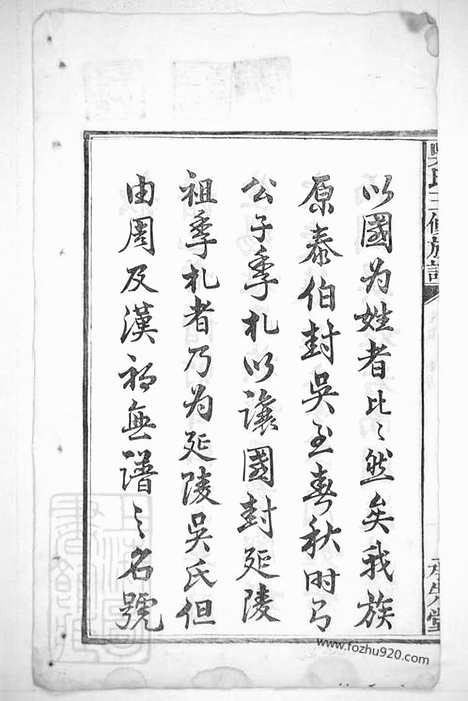 吳氏三修族譜
以國为姓者比〻然矣我族
原泰伯封吳至春秋时
公子季札以讓國封延陵
祖季札者乃为延陵吳氏但
由周及漢初無譜之名號
www.fozhu920.com